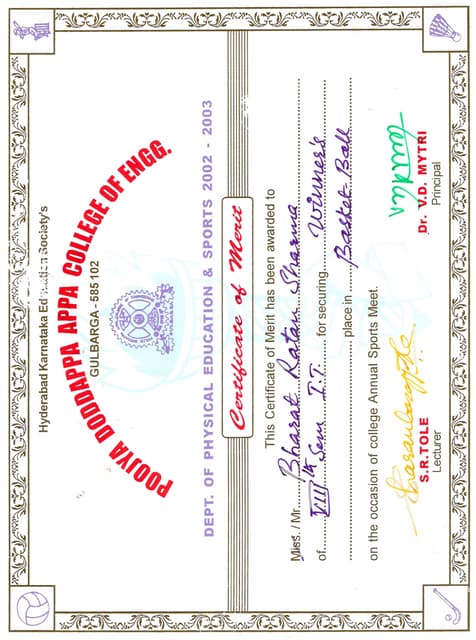 Hyderabad Karnataka Education Society's
POOJYA DODDAPPA APPA COLLEGE OF ENGG.
GULBARGA - 585 102
DEPT. OF PHYSICAL EDUCATION & SPORTS 2002 - 2003
Certificate of Merit
This Certificate of Merit has been awarded to
Miss. / Mr. Bharat Ratan Sharma
of VIIIth Sem I.T. for securing Winner's
place in Basket Ball
on the occasion of college Annual Sports Meet.
S.R.TOLE
Lecturer
Dr. V.D. MYTRI
Principal